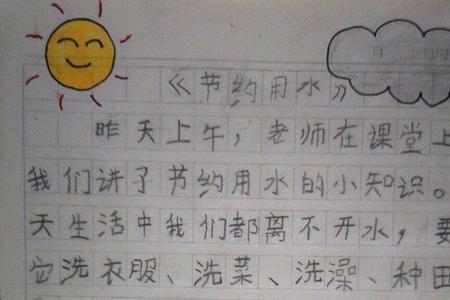 《节约用水》
昨天上午，老师在课堂上
我们讲了节约用水的小知识。
天生活中我们都离不开水，要
它洗衣服、洗菜、洗澡、种田